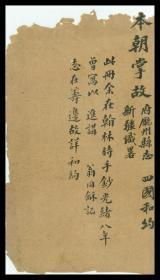 本朝掌故
府厅州縣志 四國和約
新疆識畧
此冊余在翰林時手鈔光緒八年
曾寫以進講 翁同龢記
意在籌邊故詳和約